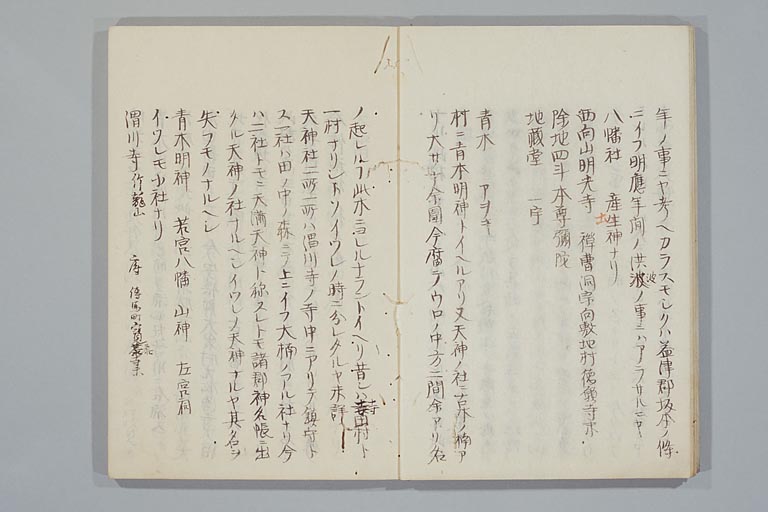 年ノ事ニヤ考ヘカラスモシクハ益津郡坂本ノ條
ニイフ明應年間ノ洪波ノ事ニハアラサルニヤ
八幡社 産土神ナリ
西向山明光寺 禅曹洞宗向敷地村徳願寺末
除地四斗本尊彌陀
地蔵堂 一宇
青木 アヲキ
村ニ青木明神トイヘルアリ又天神ノ社ニ古木ノ楠ア
リ大サ十余圍今腐テウロノ中方二間余アリ名
ノ起レルフ此木ニヨレルナラントイヘリ昔シハ寺田村ト
一村ナリシトソイツレノ時ニ分レタルヤ未詳
天神社二所一所ハ潤川寺ノ寺中ニアリテ鎮守ト
ス一社ハ田ノ中ノ森ニテ上ニイフ大楠ノアル社ナリ今
ハ二社トモニ天満天神ト称スレトモ諸郡神名帳ニ出
タル天神ノ社ナルヘシイツレノ天神ナルヤ其名ヲ
失フモノナルヘシ
青木明神 若宮八幡 山神 左宮司
イツレモ小社ナリ
潤川寺 竹龍山